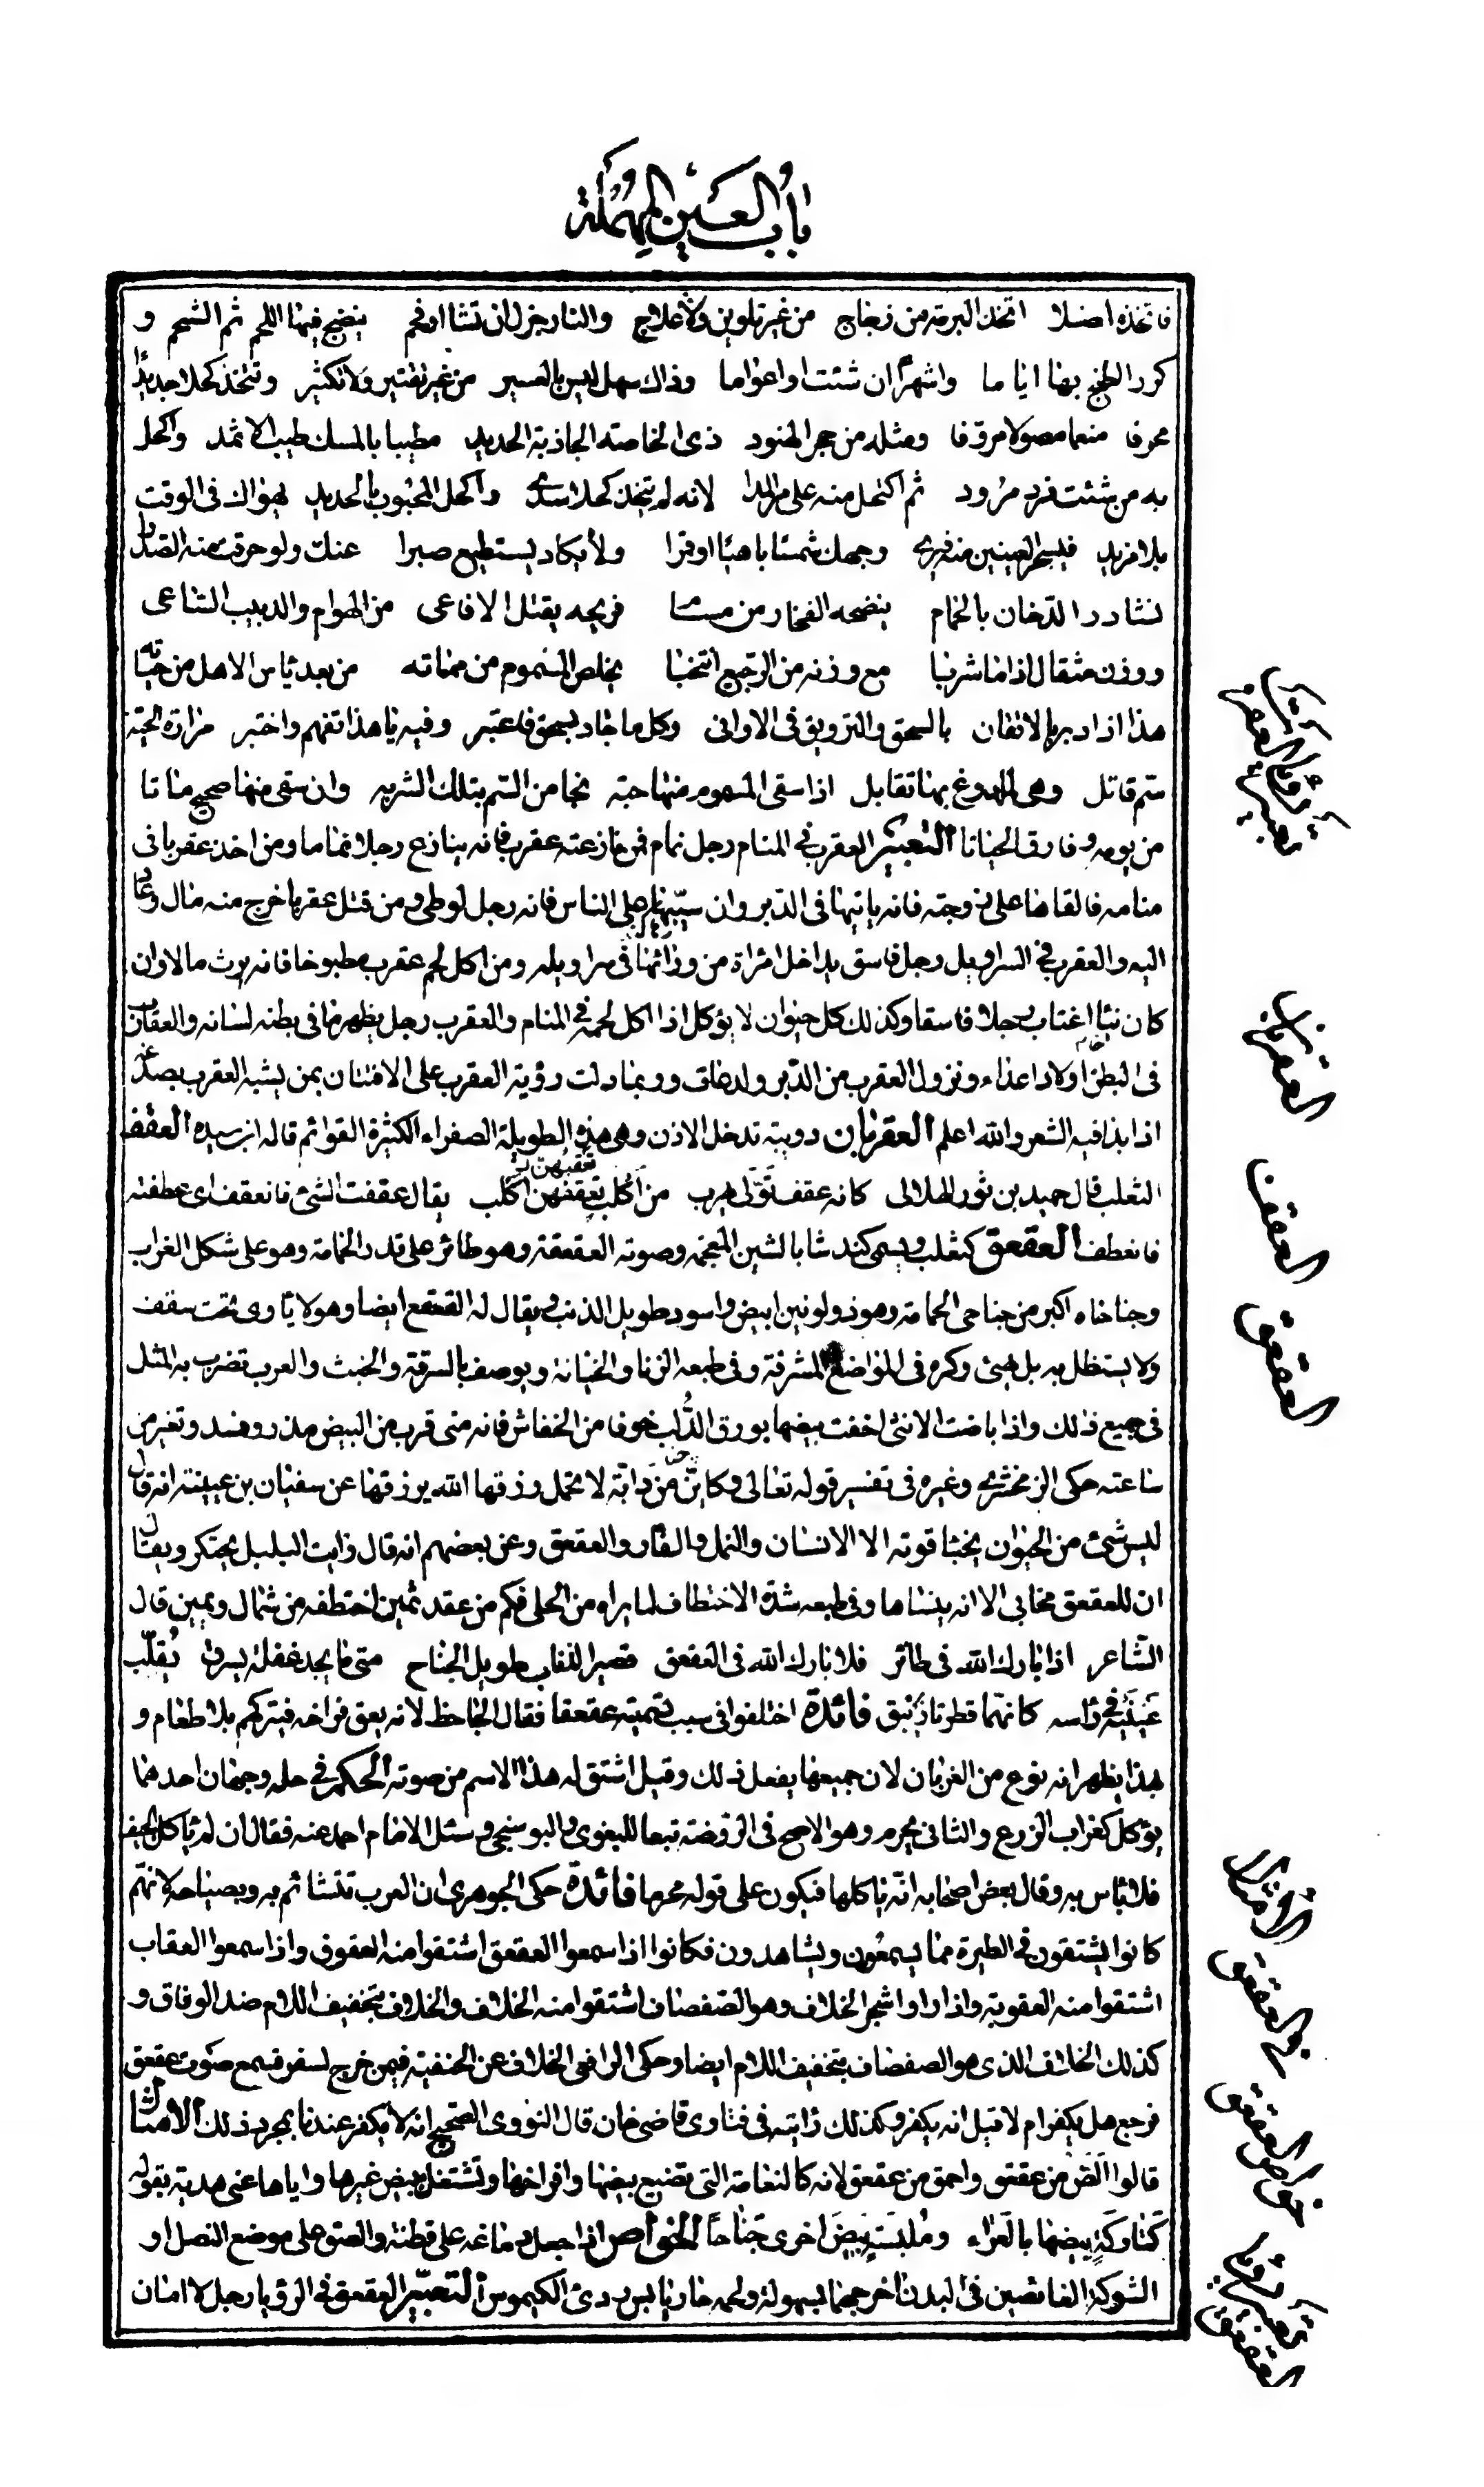 باب العين المهملة
فاتخذه اصلا اتخذ البرمة من زجاج من غير تلوين ولا علاج والنار جزل ان تشا او فحم ينضج فيها اللحم ثم الشحم و
كرر الطبخ بها اياما واشهرا ان شئت او اعواما وذاك سهل ليس بالعسير من غير تقتير ولا تكثير وتتخذ كحلا جديدا
محرقا منعما مصولا مروقا ومثله من حجر الهنود ذى الخاصته الجاذبة الحديد مطيبا بالمسك طيب الاثمد واكحل
به من شئت فرد مرود ثم اكتحل منه على لانه لم يتخذ كحلا سدى واكحل المحبوب بالحديد يهواك فى الوقت
بلا مزيد فيسحر العينين منه وجهك شمسا باهيا او قمرا ولا يكاد يستطيع صبرا عنك ولو حرقت منه الصدرا
الدخان بالحمام ينضحه الفخار من مسام فريحه يقتل الافاعى من الهوام والدبيب الساعى
ووزن مثقال اذا ما شربا مع وزنه من الرجيع انتخبا يخلص المسموم من مماته من بعد ياس الاهل من حياته
هذا اذا دبر بالاتقان بالسحق والترويق فى الاوانى وكل ما جاد بسحق فاعتبر وفيه يا هذا تفهم واختبر مرارة الحية
سم قاتل وهى لملدوغ بها تقابل اذا سقى المسموم منها حبة نجا من السم بتلك الشربه وان سقى منها صحيح ماتا
من يومه وفارق الحياتا التعبير العقرب فى المنام رجل نمام فمن نازعته عقرب فانه ينازع رجلا نماما ومن اخذ عقربا فى
منامه فالقاها على زوجته فانه ياتيها فى الدبر وان سيبها على الناس فانه رجل لوطى ومن قتل عقربا خرج منه مال وعاد
اليه والعقرب فى السراويل رجل فاسق يداخل امراة من ورائها فى سراويله ومن اكل لحم عقرب مطبوخا فانه يرث مالا وان
كان نيئا اغتاب رجلا فاسقا وكذلك كل حيوان لا يؤكل اذا اكل لحمه فى المنام والعقرب رجل يظهر ما فى بطنه لسانه والعقارب
فى البطن اولاد اعداء ونزول العقرب من الدبر ولد عاق وربما دلت رؤية العقرب على الافتتان بمن يشبه العقرب بصدغه
اذا بدا فيه الشعر والله اعلم العقربان دويبة تدخل الاذن وهى هذه الطويلة الصفراء الكثيرة القوائم قاله ابن سيده العقف
الثعلب قال حميد بن ثور الهلالى كانه عقف تولى يهرب من اكلب تعقفهن اكلب يقال عقفت الشئ فانعقف اى عطفته
فانعطف العقعق كثعلب ويسمى كندشا بالشين المعجمة وصوته العقعقة وهو طائر على قدر الحمامة وهو على شكل الغراب
وجناحاه اكبر من جناحى الحمامة وهو ذو لونين ابيض واسود طويل الذنب ويقال له القعقع ايضا وهو لا ياوى تحت سقف
ولا يستظل به بل يهيئ وكره فى المواضع المشرفة وفى طبعه الزنا والخيانة ويوصف بالسرقة والخبث والعرب تضرب به المثل
فى جميع ذلك واذا باضت الانثى اخفت بيضها بورق الدلب خوفا من الخفاش فانه متى قرب من البيض مذر وفسد وتغير من
ساعته حكى الزمخشرى وغيره فى تفسير قوله تعالى وكاين من دابة لا تحمل رزقها الله يرزقها عن سفيان بن عيينة انه قال
ليس شئ من الحيوان يخبا قوته الا الانسان والنمل والفار والعقعق وعن بعضهم انه قال رايت البلبل يحتكر ويقال
ان للعقعق مخابى الا انه ينساها وفى طبعه شدة الاختطاف لما يراه من الحلى فكم من عقد ثمين اختطفه من شمال ويمين قال
الشاعر اذا بارك الله فى طائر فلا بارك الله فى العقعق قصير الذنابى طويل الجناح متى ما يجد غفلة يسرق يقلب
عينيه فى راسه كانهما قطرتا زئبق فائدة اختلفوا فى سبب تسميته عقعقا فقال الجاحظ لانه يعق فراخه فيتركهم بلا طعام و
بهذا يظهر انه نوع من الغربان لان جميعها يفعل ذلك وقيل اشتق له هذا الاسم من صوته الحكم فى حله وجهان احدهما
يؤكل كغراب الزرع والثانى يحرم وهو الاصح فى الروضة تبعا للبغوى والبوسنجى وسئل الامام احمد عنه فقال ان لم ياكل الجيف
فلا باس به وقال بعض اصحابه انه ياكلها فيكون على قوله محرما فائدة حكى الجوهرى ان العرب تتشائم به وبصياحه لانهم
كانوا يشتقون فى الطيرة مما يسمعون ويشاهدون فكانوا اذا سمعوا العقعق اشتقوا منه العقوق واذا سمعوا العقاب
اشتقوا منه العقوبة واذا راوا شجر الخلاف وهو الصفصاف اشتقوا منه الخلاف والخلاف بتخفيف اللام ضد الوفاق و
كذلك الخلاف الذى هو الصفصاف بتخفيف اللام ايضا وحكى الرافعى الخلاف عن الحنفية فيمن خرج لسفر فسمع صوت عقعق
فرجع هل يكفر ام لا قيل انه يكفر وكذلك رايته فى فتاوى قاضى خان قال النووى الصحيح انه لا يكفر عندنا بمجرد ذلك الامثال
قالوا الص من عقعق واحمق من عقعق لانه كالنعامة التى تضيع بيضها وافراخها وتشتغل ببيض غيرها واياها عنى هدبة بقوله
كتاركة بيضها بالعراء وملبسة بيض اخرى جناحا الخواص اذا جعل دماغه على قطنة والصق على موضع النصل او
الشوكة الغائصين فى البدن اخرجهما بسهولة ولحمه حار يابس ردئ الكيموس التعبير العقعق فى الرؤيا رجل لا امان
العقربان
العقف
العقعق
الامثال
خواص العقعق
تعبير رؤيا العقعق